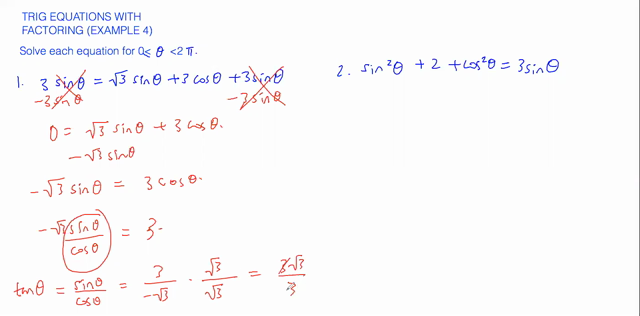 TRIG EQUATIONS WITH
FACTORING (EXAMPLE 4)
Solve each equation for 0≤ θ <2π.
1. 3 sinθ = √3 sinθ + 3 cosθ + 3 sinθ
-3 sinθ -3 sinθ
0 = √3 sinθ + 3 cosθ.
-√3 sinθ
-√3 sinθ = 3 cosθ.
-√3 sinθ/cosθ = 3.
tanθ = sinθ/cosθ = 3/-√3 · √3/√3 = 3√3/3
2. sin²θ + 2 + cos²θ = 3 sinθ